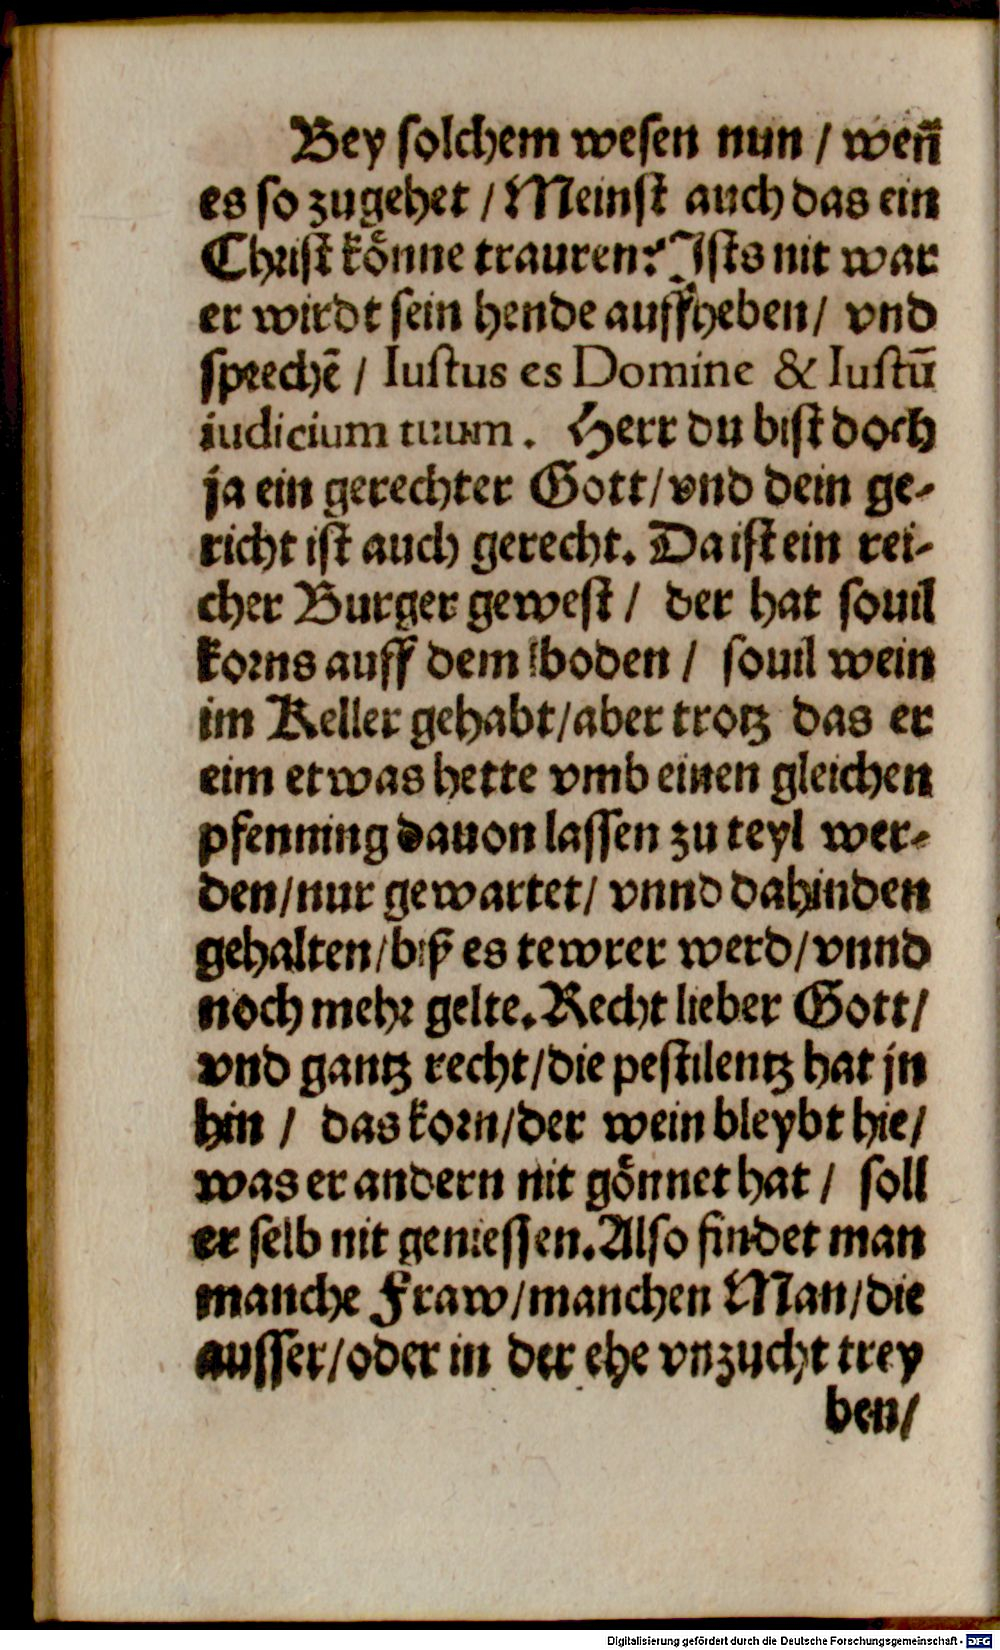 Bey solchem wesen nun / weñ
es so zugehet / Meinst auch das ein
Christ könne trauren? Ists nit war
er wirdt sein hende auffheben / vnd
sprechē / Iustus es Domine & Iustū
iudicium tuum. Herr du bist doch
ja ein gerechter Gott / vnd dein ge-
richt ist auch gerecht. Da ist ein rei-
cher Burger gewest / der hat souil
korns auff dem boden / souil wein
im Keller gehabt / aber trotz das er
eim etwas hette vmb einen gleichen
pfenning dauon lassen zu teyl wer-
den / nur gewartet / vnnd dahinden
gehalten / biß es tewrer werd / vnnd
noch mehr gelte. Recht lieber Gott /
vnd gantz recht / die pestilentz hat jn
hin / das korn / der wein bleybt hie /
was er andern nit gönnet hat / soll
er selb nit geniessen. Also findet man
manche Fraw / manchen Man / die
ausser / oder in der ehe vnzucht trey
ben /
Digitalisierung gefördert durch die Deutsche Forschungsgemeinschaft - DFG